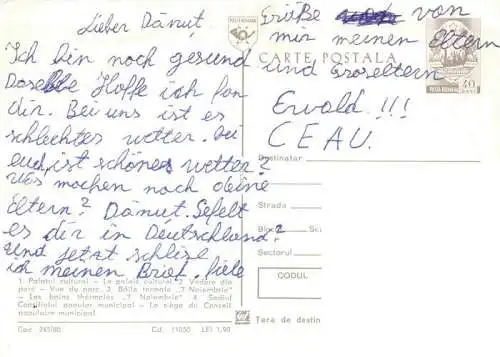 Lieber Dănuț,
Ich bin noch gesund
Dasselbe Hoffe ich fon
dir. Bei uns ist es
schlechtes wetter. bei
eud, ist schönes wetter?
was machen noch deine
Eltern? Dănut. Gefelt
es dir in Deutschland?
Und jetzt schlise
ich meinen Brief, fiele
Grüße von
mir meinen Eltern
und Groseltern
Ewald!!!
CEAU.
POSTA ROMANA
CARTE POSTALA
POSTA ROMANA
40
BANI
Destinatar
Strada
Bloc
Sc
Sectorul
CODUL
Țara de destin
1. Palatul cultural - Le palais culturel 2. Vedere din
parc - Vue du parc 3. Băile termale „7 Noiembrie"
- Les bains thermales „7 Noiembrie" 4. Sediul
Consiliului popular municipal - Le siège du Conseil
populaire municipal
Cod 265/80
Cd. 11050
LEI 1,90